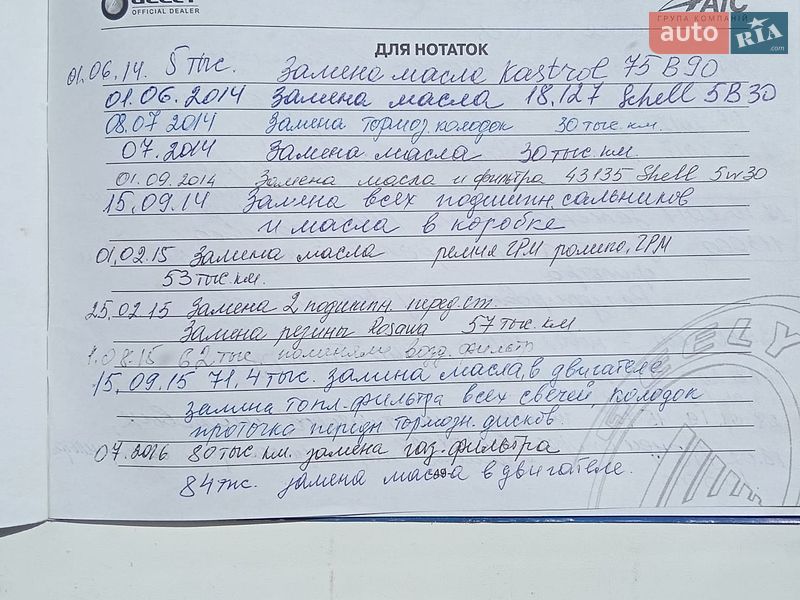 GEELY
OFFICIAL DEALER
АІС
ГРУПА КОМПАНІЙ
auto RIA.com
ДЛЯ НОТАТОК
01.06.14. 5 тыс. Замена масла Kastrol 75 B 90
01.06.2014 Замена масла 18.127 Schell 5B30
08.07 2014 Замена тормоз. колодок 30 тыс. км.
07.2014 Замена масла 30 тыс. км.
01.09.2014 Замена масла и фильтра 43135 Shell 5w30
15.09.14 Замена всех подшипн. сальников
и масла в коробке
01.02.15 Замена масла ремня ГРМ ролико, ГРМ
53 тыс км.
25.02.15 Замена 2 подшипн. перед. ст.
Замена резины Rosava 57 тыс. км
1.08.15 62 тыс поменяли возд. фильтр
15.09.15 71,4 тыс. замина масла, в двигателе
замина топл-фильтра всех свечей, колодок
проточка передн тормозн. дисков.
07.2016 80 тыс. км. замена газ. фильтра
84 тыс. замена масла в двигателе.
ELY